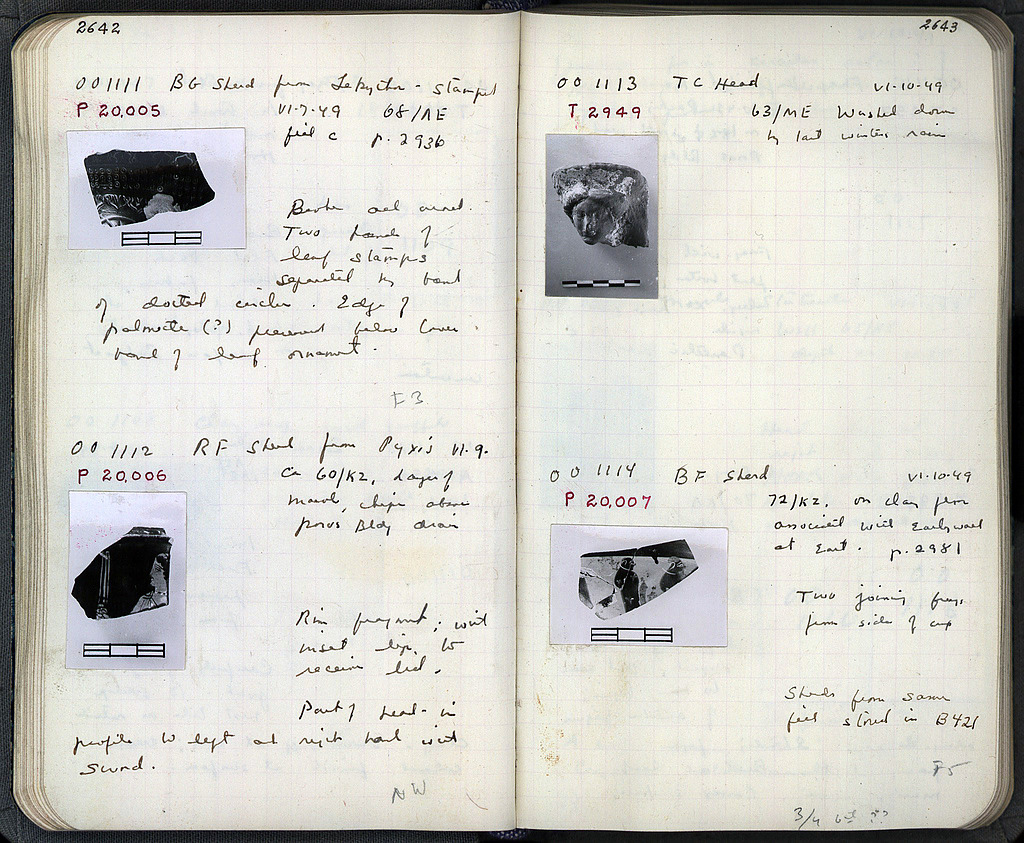 2642
OO 1111 BG Sherd from Lekythos - stamped
P 20,005 VI-7-49 68/ΛE
fill c p. 2936
Broken all around.
Two bands of
leaf stamps
separated by band
of dotted circles. Edge of
palmette (?) preserved below lower
band of leaf ornament.
F3
OO 1112 RF Sherd from Pyxis VI.9.
P 20,006 Ca 60/KZ, Layer of
marble chips above
poros Bldg drain
Rim fragment; with
inset lip, to
receive lid.
Part of head - in
profile to left and right hand with
sword.
NW
2643
OO 1113 TC Head VI-10-49
T 2949 63/ME Washed down
by last winters rain
OO 1114 BF Sherd VI-10-49
P 20,007 72/KZ, on clay floor
associated with Early wall
at East. p. 2981
Two joining frags.
from side of cup
Sherds from same
fill stored in B421
F5
3/4 6th ??